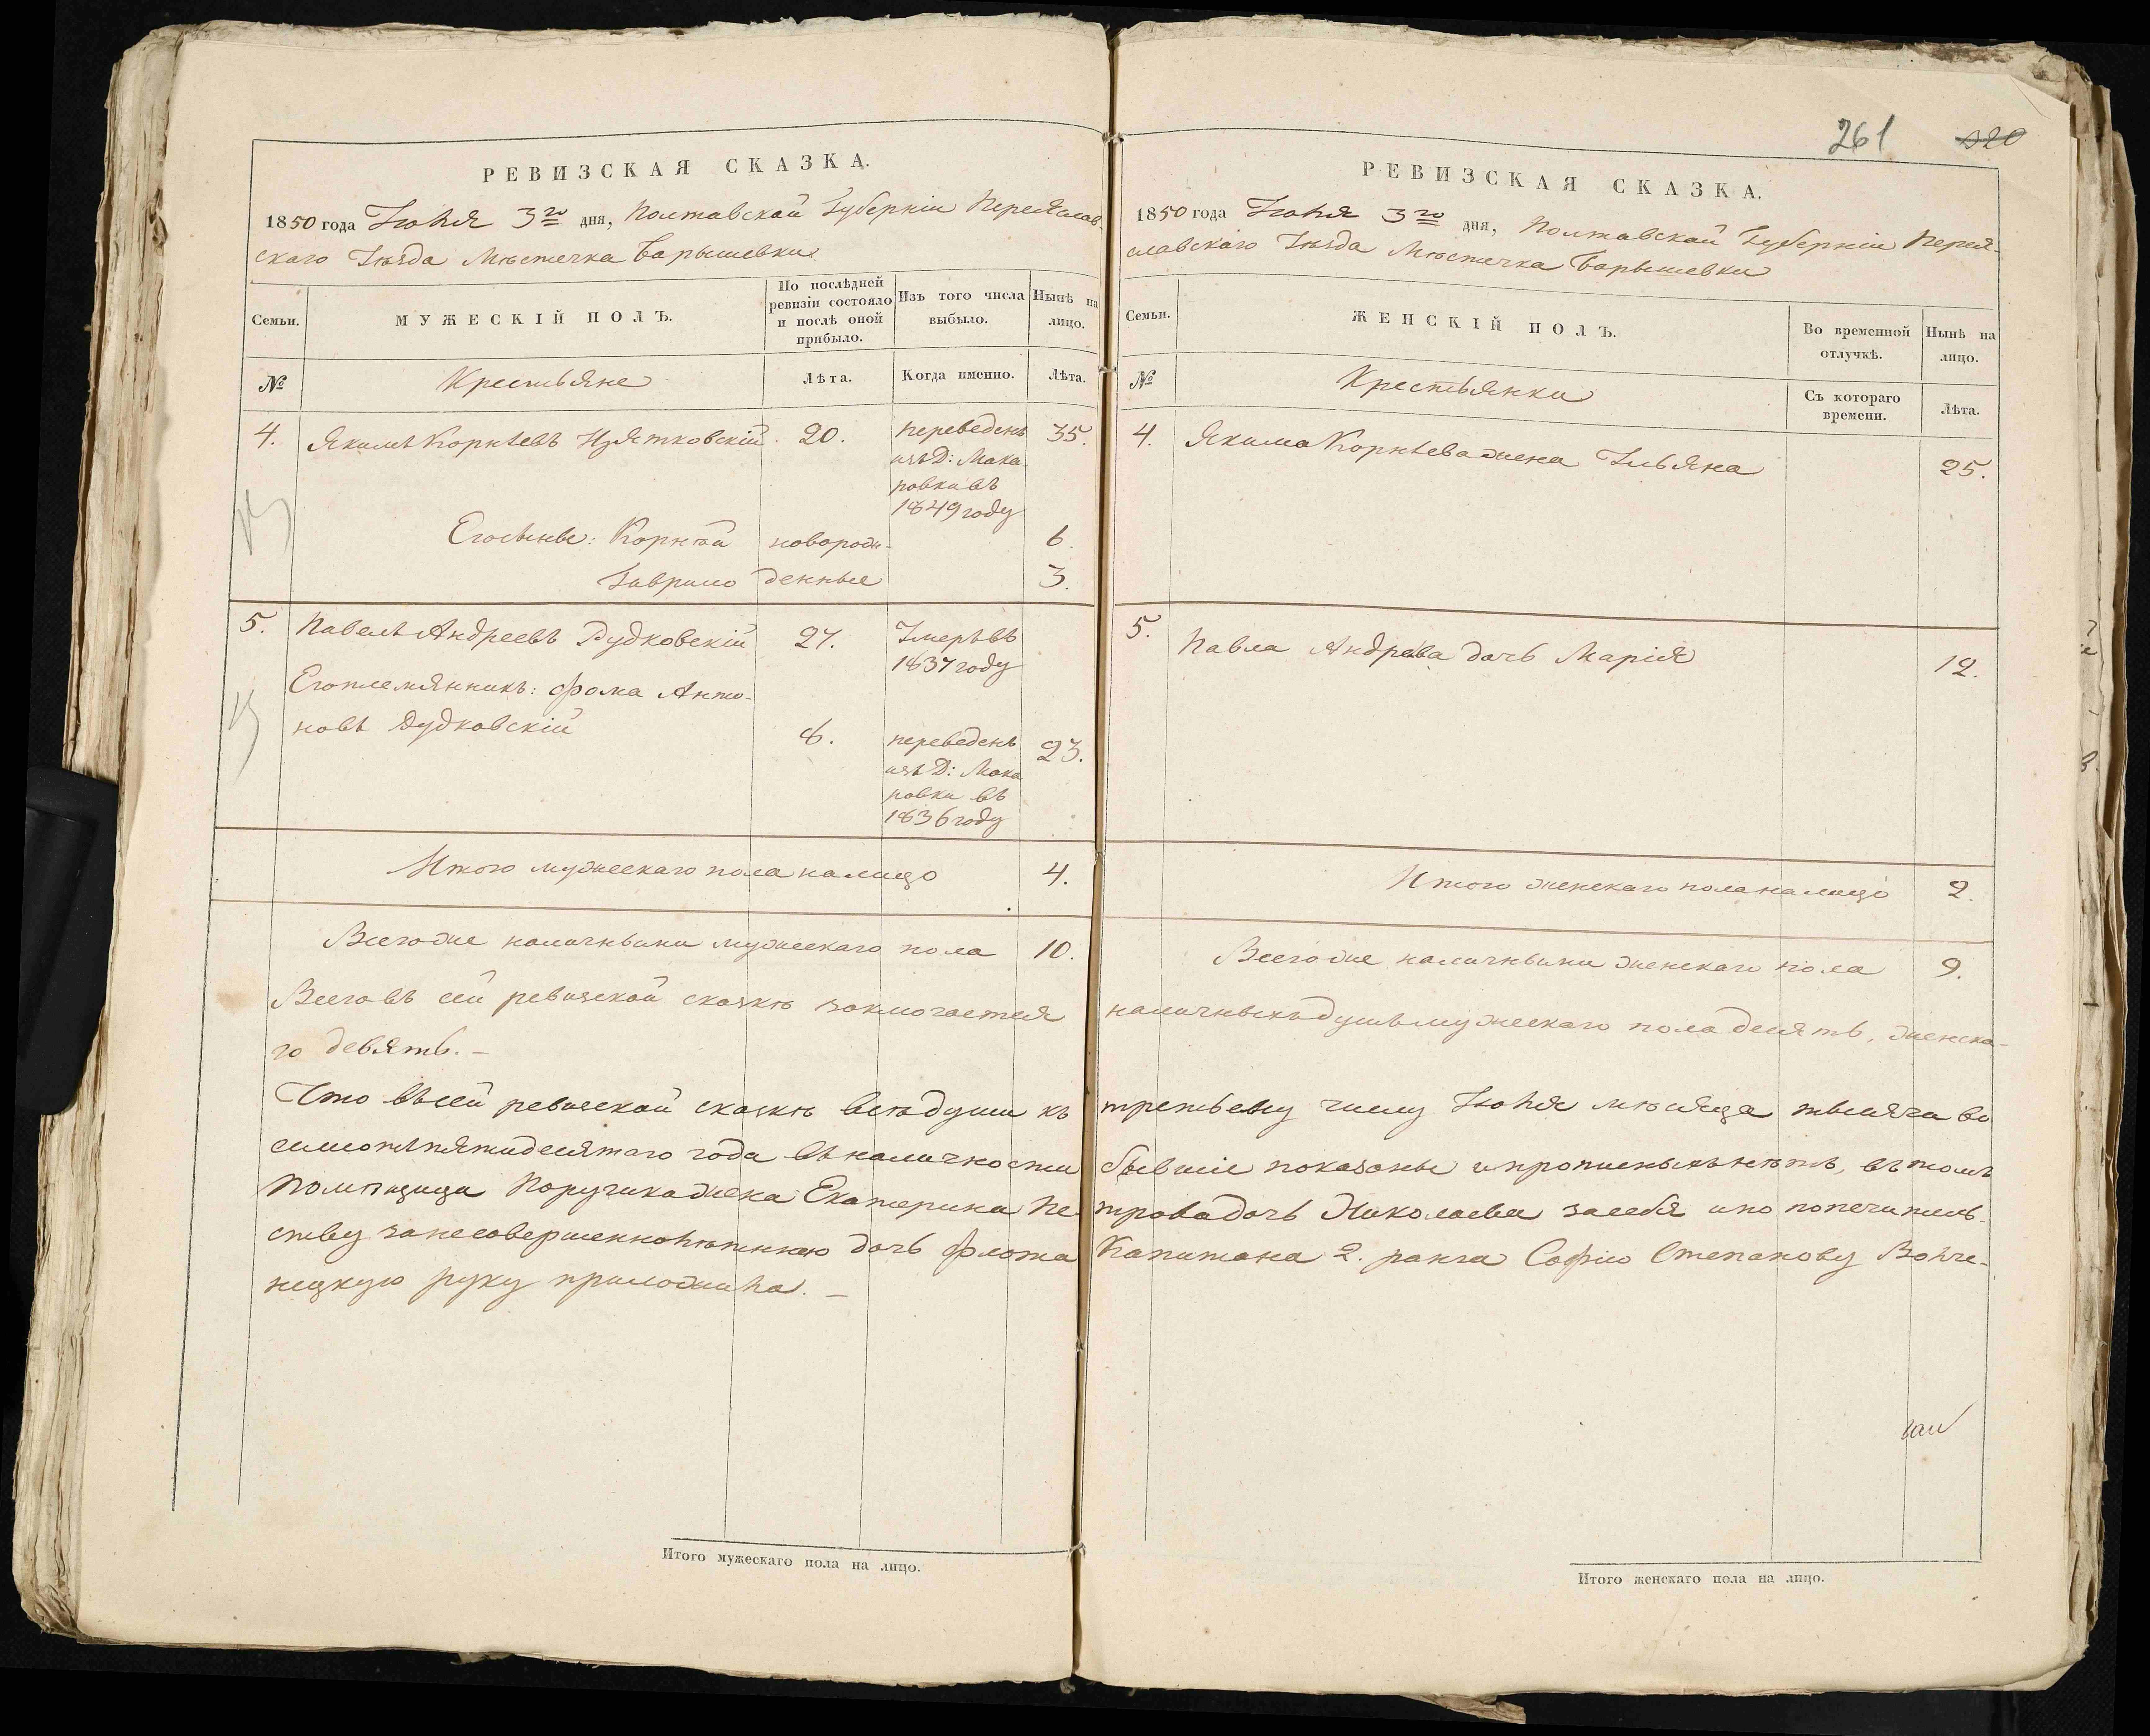 261 320
РЕВИЗСКАЯ СКАЗКА.
1850 года Июня 3го дня, Полтавской Губерніи Переяслав-
скаго Уѣзда Мѣстечка Барышевки
Семьи. МУЖЕСКІЙ ПОЛЪ. По послѣдней ревизіи состояло и послѣ оной прибыло. Изъ того числа выбыло. Нынѣ на лицо.
№ Крестьяне Лѣта. Когда именно. Лѣта.
4. Якимъ Корнѣевъ Изятковскій 20. переведенъ 35.
изъ Д: Мака-
ровки въ
1849 году
Его сыны: Корнѣй новорож- 6.
Гаврило денные 3.
5. Павелъ Андреевъ Дудковскій 27. Умеръ въ
1837 году
Его племянникъ: Фома Анто-
новъ Дудковскій 8. переведенъ 23.
изъ Д: Мака
ровки въ
1836 году
Итого мужескаго пола налицо 4.
Всего же наличными мужескаго пола 10.
Всего въ сей ревизской сказкѣ заключается
го девять. –
Что въ сей ревизской сказкѣ всѣ души къ
семисотъ пятидесятаго года въ наличности
Помѣщица Поручика жена Екатерина Пе-
ству за несовершеннолѣтнюю дочь флота
нецкую руку приложила. –
Итого мужескаго пола на лицо.
РЕВИЗСКАЯ СКАЗКА.
1850 года Июня 3го дня, Полтавской Губерніи Перея-
славскаго Уѣзда Мѣстечка Барышевки
Семьи. ЖЕНСКІЙ ПОЛЪ. Во временной отлучкѣ. Нынѣ на лицо.
№ Крестьянки Съ котораго времени. Лѣта.
4. Якима Корнѣева жена Ульяна 25.
5. Павла Андреева дочь Марія 12.
Итого женскаго пола налицо 2.
Всего же наличными женскаго пола 9.
наличныхъ душъ мужескаго пола десять, женска-
третьему числу Июня мѣсяца тысяча во
бывшіе показаны и прописныхъ нѣтъ, въ томъ
трова дочь Николаева за себя и по попечитель-
Капитана 2. ранга Софію Степанову Волче-
Итого женскаго пола на лицо.